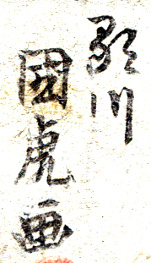 歌川
國虎画